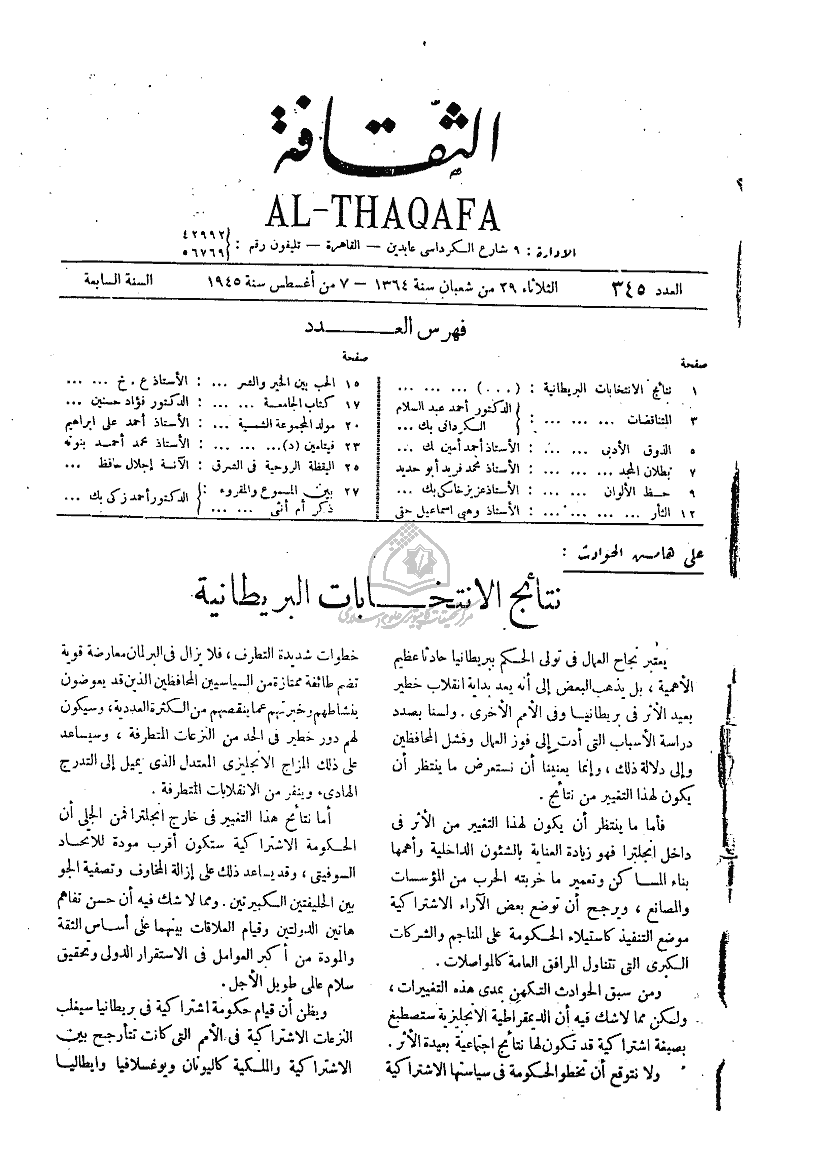 الثقافة
AL-THAQAFA
الادارة : ٩ شارع الكرداسى عابدين — القاهرة — تليفون رقم : { ٤٢٩٩٢ ٥٦٧٦٩ }
العدد ٣٤٥
الثلاثاء ٢٩ من شعبان سنة ١٣٦٤ — ٧ من أغسطس سنة ١٩٤٥
السنة السابعة
فهرس العــــدد
صفحة
١ نتائج الانتخابات البريطانية : (...) ... ... ...
٣ المتناقضات ... ... ... : { الدكتور أحمد عبد السلام الكردانى بك ...
٥ الذوق الأدبى ... ... : الأستاذ أحمد أمين بك ...
٧ بطلان المجد ... ... ... : الأستاذ محمد فريد أبو حديد
٩ حــظ الألوان ... ... : الأستاذ عزيز خانكى بك ...
١٢ الثأر ... ... ... ... : الأستاذ وهبى اسماعيل حقى
صفحة
١٥ الحب بين الخير والشر ... : الأستاذ ع . خ ... ...
١٧ كتاب الجامعة ... ... : الدكتور فؤاد حسنين ...
٢٠ مولد المجموعة الشمسية ... : الأستاذ أحمد على ابراهيم
٢٣ فيتامين (د) ... ... ... : الأستاذ محمد أحمد بنونه
٢٥ اليقظة الروحية فى الشرق : الآنسة إجلال حافظ ...
٢٧ بين المسموع والمقروء : ذكر أم أنثى ... ... } الدكتور أحمد زكى بك ...
على هامش الحوادث :
نتائج الانتخــابات البريطانية
يعتبر نجاح العمال فى تولى الحكم ببريطانيا حادثا عظيم
الأهمية ، بل يذهب البعض إلى أنه يعد بداية انقلاب خطير
بعيد الأثر فى بريطانيا وفى الأمم الأخرى . ولسنا بصدد
دراسة الأسباب التى أدت إلى فوز العمال وفشل المحافظين
وإلى دلالة ذلك ، وإنما يعنينا أن نستعرض ما ينتظر أن
يكون لهذا التغيير من نتائج .
فأما ما ينتظر أن يكون لهذا التغيير من الأثر فى
داخل انجلترا فهو زيادة العناية بالشئون الداخلية وأهمها
بناء المساكن وتعمير ما خربته الحرب من المؤسسات
والمصانع ، ويرجح أن توضع بعض الآراء الاشتراكية
موضع التنفيذ كاستيلاء الحكومة على المناجم والشركات
الكبرى التى تتناول المرافق العامة كالمواصلات .
ومن سبق الحوادث التكهن بمدى هذه التغييرات ،
ولكن مما لا شك فيه أن الديمقراطية الانجليزية ستصطبغ
بصبغة اشتراكية قد تكون لها نتائج اجتماعية بعيدة الأثر .
ولا نتوقع أن تخطو الحكومة فى سياستها الاشتراكية
خطوات شديدة التطرف ، فلا يزال فى البرلمان معارضة قوية
تضم طائفة ممتازة من السياسيين المحافظين الذين قد يعوضون
بنشاطهم وخبرتهم عما ينقصهم من الكثرة العددية ، وسيكون
لهم دور خطير فى الحد من النزعات المتطرفة ، وسيساعد
على ذلك المزاج الانجليزى المعتدل الذى يميل إلى التدرج
الهادىء وينفر من الانقلابات المتطرفة .
أما نتائج هذا التغيير فى خارج انجلترا فمن الجلى أن
الحكومة الاشتراكية ستكون أقرب مودة للاتحاد
السوفيتى ، وقد يساعد ذلك على إزالة المخاوف وتصفية الجو
بين الحليفتين الكبيرتين . ومما لا شك فيه أن حسن تفاهم
هاتين الدولتين وقيام العلاقات بينهما على أساس الثقة
والمودة من أكبر العوامل فى الاستقرار الدولى وتحقيق
سلام عالمى طويل الأجل .
ويظن أن قيام حكومة اشتراكية فى بريطانيا سيغلب
النزعات الاشتراكية فى الأمم التى كانت تتأرجح بين
الاشتراكية والملكية كاليونان ويوغسلافيا وايطاليا